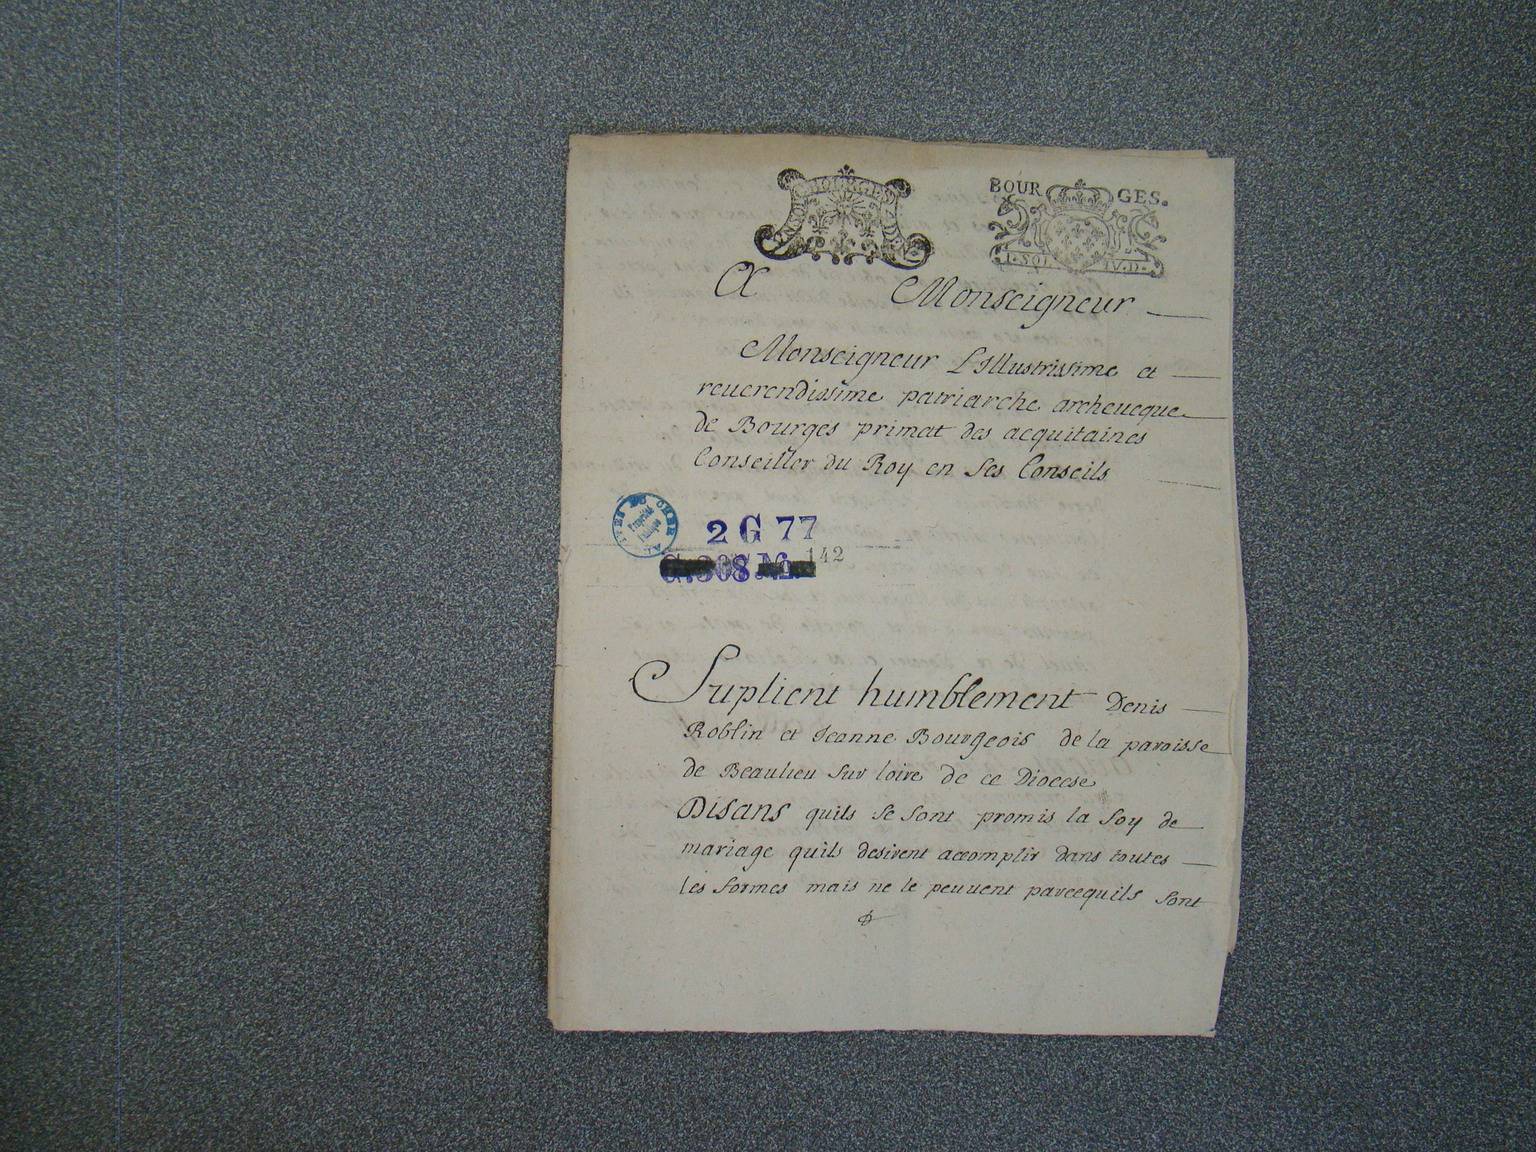 BOURGES.
1. SOL IV. D.
A Monseigneur
Monseigneur L'Illustrissime et
reuerendissime patriarche archeueque
de Bourges primat des acquitaines
Conseiller du Roy en ses Conseils
2 G 77
142
Suplient humblement Denis
Roblin et Jeanne Bourgeois de la paroisse
de Beaulieu sur loire de ce Diocese
DISANS quils se sont promis la foy de
mariage quils desirent accomplir dans toutes
les formes mais ne le peuuent parcequils sont